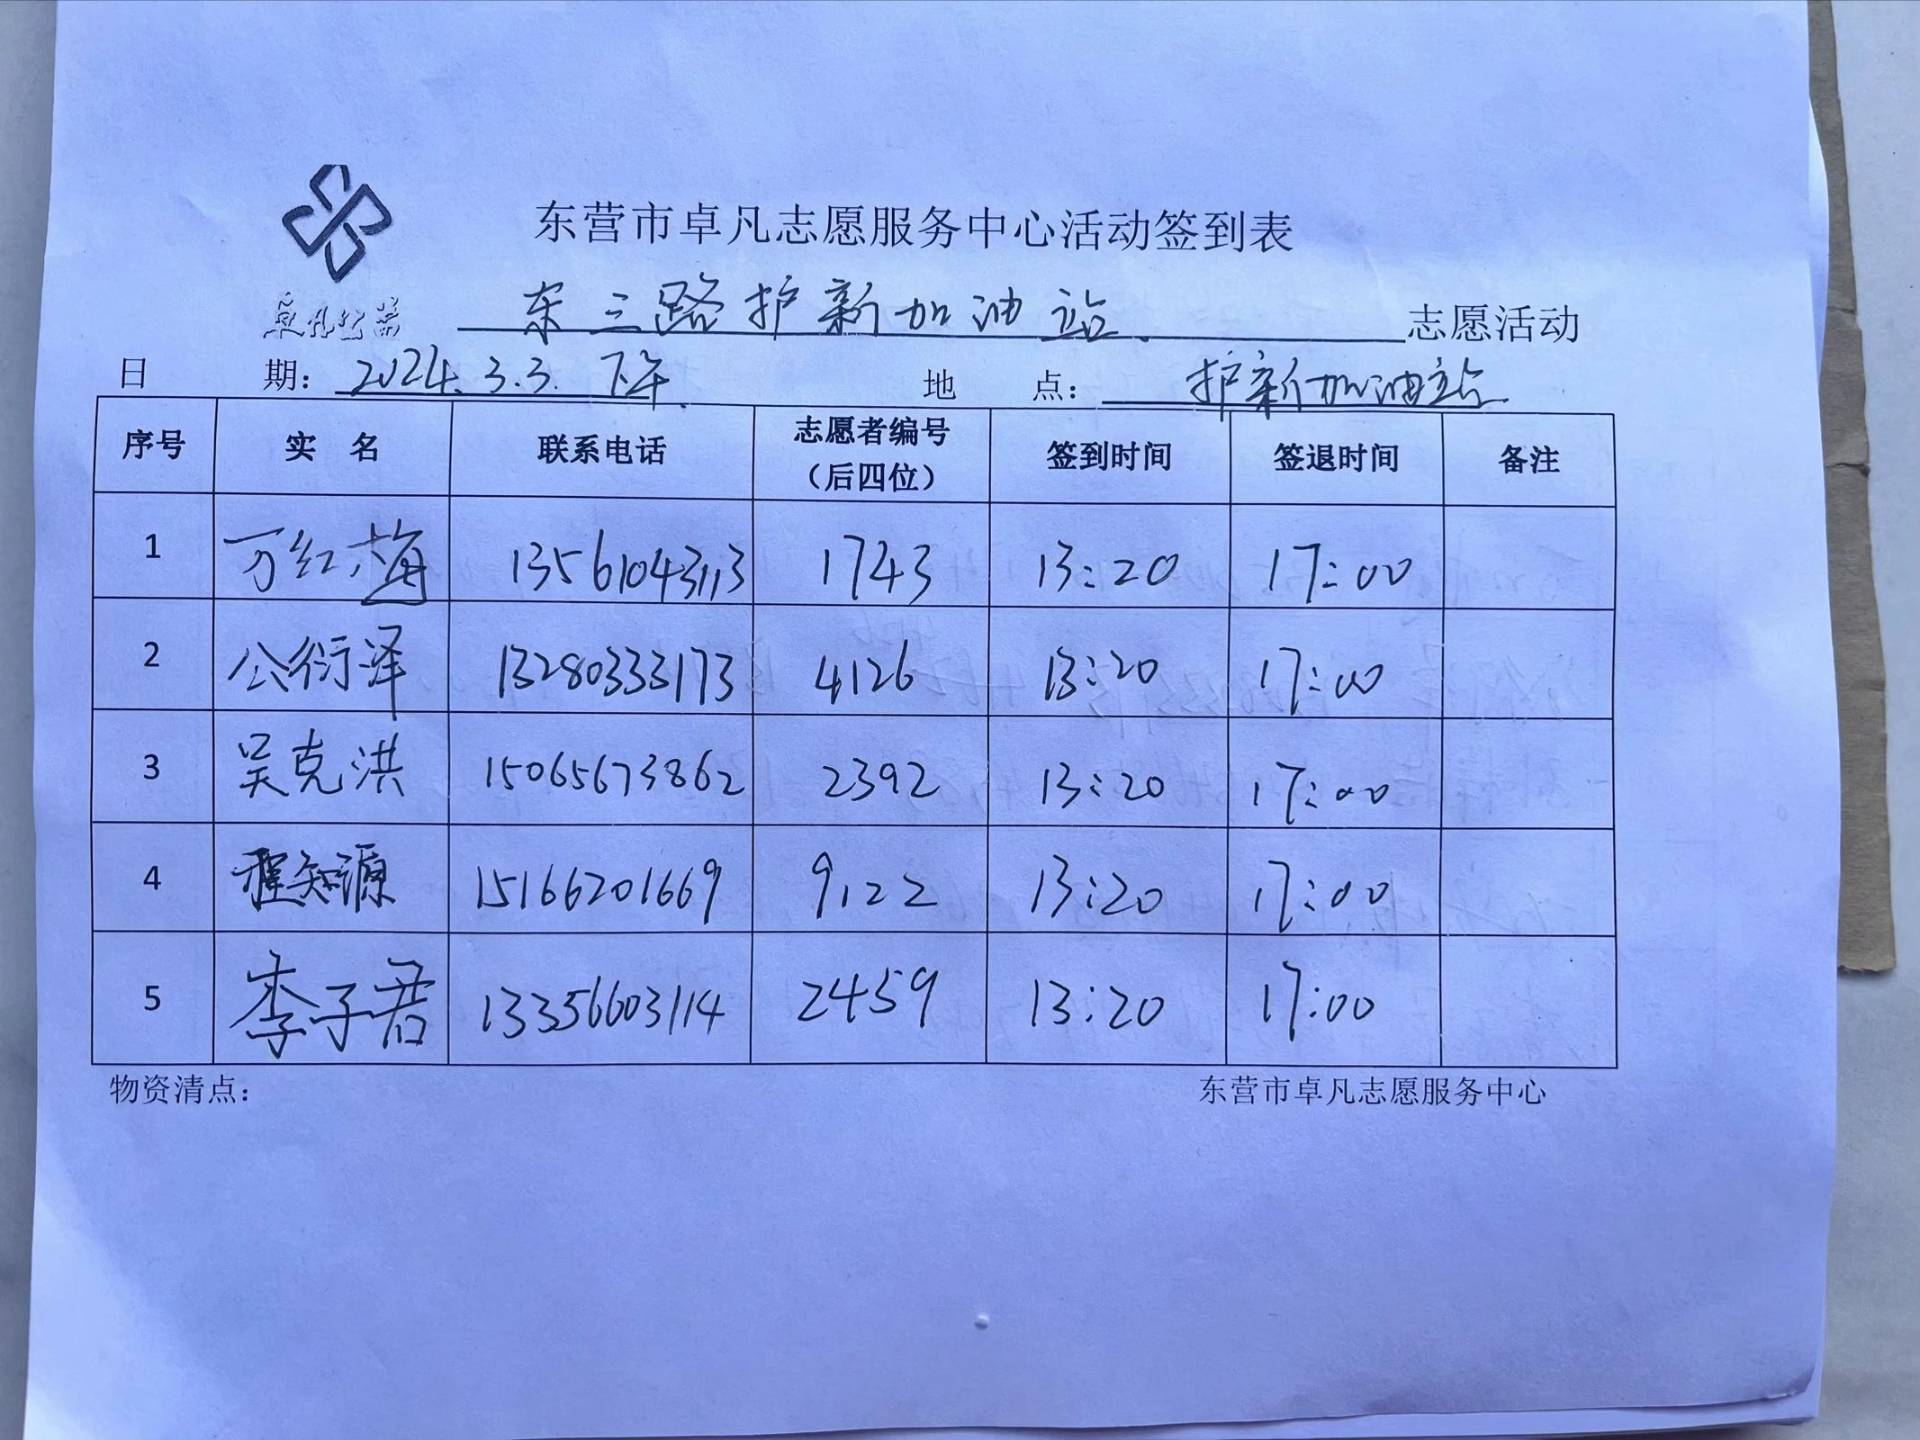 东营市卓凡志愿服务中心活动签到表
卓凡公益 东三路护新加油站 志愿活动
日 期：2024.3.3. 下午. 地 点：护新加油站
序号 实 名 联系电话 志愿者编号（后四位） 签到时间 签退时间 备注
1 万红梅 13561043113 1743 13:20 17:00
2 公衍泽 13280333173 4126 13:20 17:00
3 吴克洪 15065673862 2392 13:20 17:00
4 程知源 15166201669 9122 13:20 17:00
5 李子君 13356603114 2459 13:20 17:00
物资清点： 东营市卓凡志愿服务中心